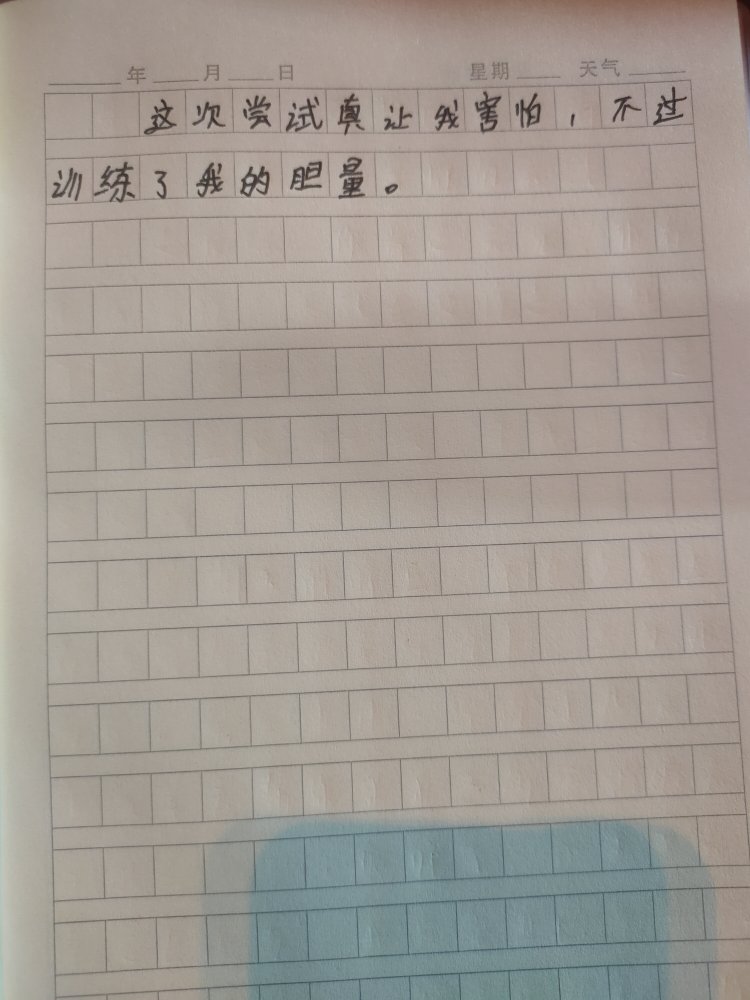 年 月 日 星期 天气
这次尝试真让我害怕，不过
训练了我的胆量。